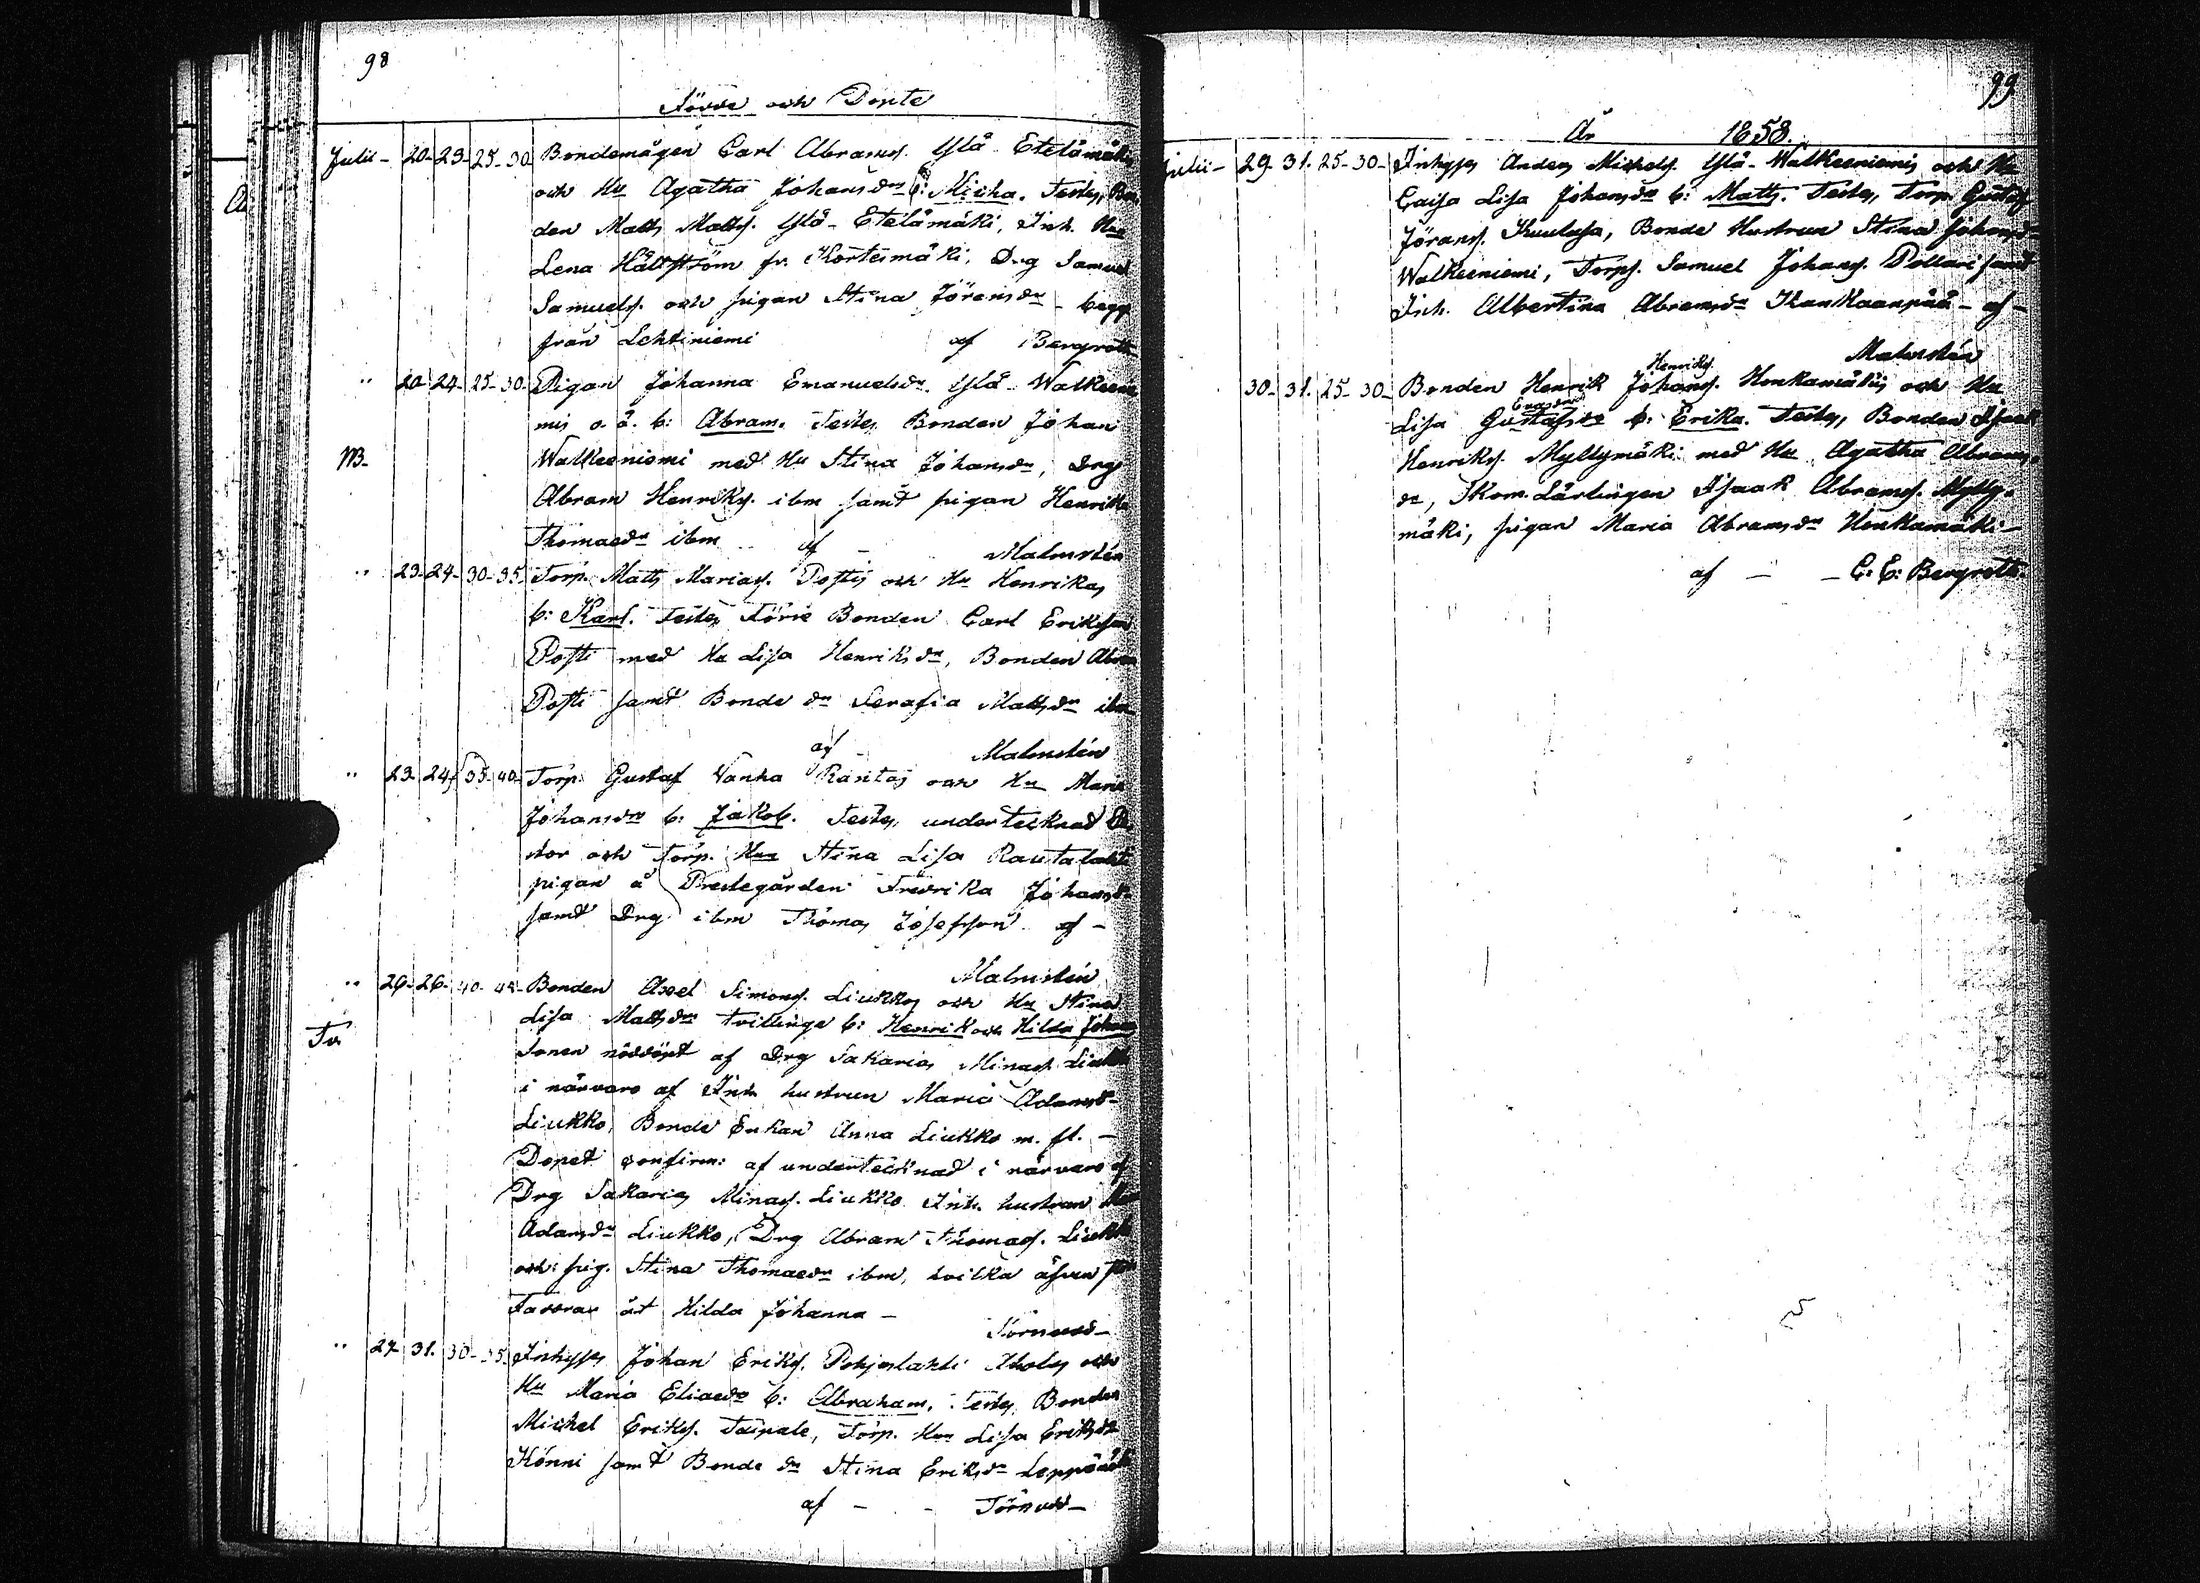 98
Födde och Döpte
Julii - 20- 23- 25- 30 Bondemågen Carl Abramss. Ylä- Etelämäki
och Hu Agatha Johansdr b: Micha. Testes, Bon
den Matts Mattss. Ylä- Etelämäki, Inh. Hu
Lena Hällström fr. Kortesmäki, Drg Samuel
Samuelss. och pigan Stina Jöransdr - begge
från Lehtiniemi af Bergroth
" 20- 24- 25- 30- Pigan Johanna Emanuelsdr Ylä- Walkeenie
mis o. ä. b: Abram. Testes Bonden Johan
Walkeeniemi med Hu Stina Johansdr, Drg
Abram Henrikss. ibm samt pigan Henrika
Thomaedr ibm af - Malmstén
" 23- 24- 30- 35. Torp. Matts Mariass. Postis och Hu Henrikas
b: Karl. Testes Förre Bonden Carl Eriksson
Posti med Hu Lisa Henriksdr, Bonden Abram
Posti samt Bonde dr Serafia Mattsdr ibm
af Malmstén
" 23- 24- 35- 40- Torp. Gustaf Vanha Räntäs och Hu Maria
Johansdr b: Jakob. Testes, undertecknad
och Torp. Hu Stina Lisa Rautalahti
pigan å Prestegården Fredrika Johansdr
samt Drg ibm Thomas Josefsson af -
Malmstén
" 26- 26- 40- 45- Bonden Axel Simonss. Liukkos och Hu Stina
Tv. Lisa Mattsdr Tvillinge b: Henrik och Hilda Johanna
Sonen nöddöpt af Drg Sakarias Minass. Liukko
i närvaro af Inh. hustrun Maria Adamsdr
Liukko, Bonde Enkan Anna Liukko m. fl. -
Dopet confirm: af undertecknad i närvaro af
Drg Sakarias Minass. Liukko Inh. hustrun
Adamsdr Liukko, Drg Abram Thomass. Liukko
och pig. Stina Thomaedr ibm, hvilka äfven
Faddrar åt Hilda Johanna -
Törnudd -
" 27- 31. 30- 35- Inhyses Johan Erikss. Pohjoslahti Aholas och
Hu Maria Eliaedr b: Abraham. Testes, Bonden
Michel Erikss. Taipale, Torp. Hu Lisa Eriksdr
Könni samt Bonde dr Stina Eriksdr
af - - Törnudd -
99
År 1858.
Julii - 29- 31. 25- 30- Inhyses Anders Michelss. Ylä- Walkeeniemis och Hu
Caisa Lisa Johansdr b: Matts. Testes, Torp. Gustaf
Jöranss. Kuulusa, Bonde Hustrun Stina Johansdr
Walkeeniemi, Torps. Samuel Johanss. Pollari samt
Inh. Albertina Abramsdr Kankaanpää - af -
Malmstén
Henrikss.
30- 31. 25- 30- Bonden Henrik Johanss. Honkamäkis och Hu
Lisa Gustafsdr b: Erika. Testes, Bonden Isaak
Henrikss. Myllymäki med Hu Agatha Abrams
dr, Skom. Lärlingen Isaak Abramss. Mylly-
mäki, pigan Maria Abramsdr Honkamäki -
af - - C: E: Bergroth.